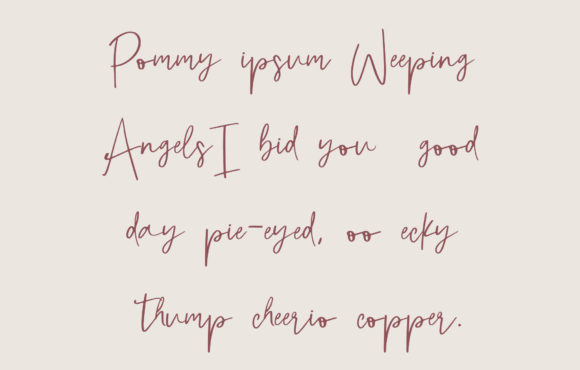 Pommy ipsum Weeping
AngelsI bid you good
day pie-eyed, oo ecky
thump cheerio copper.